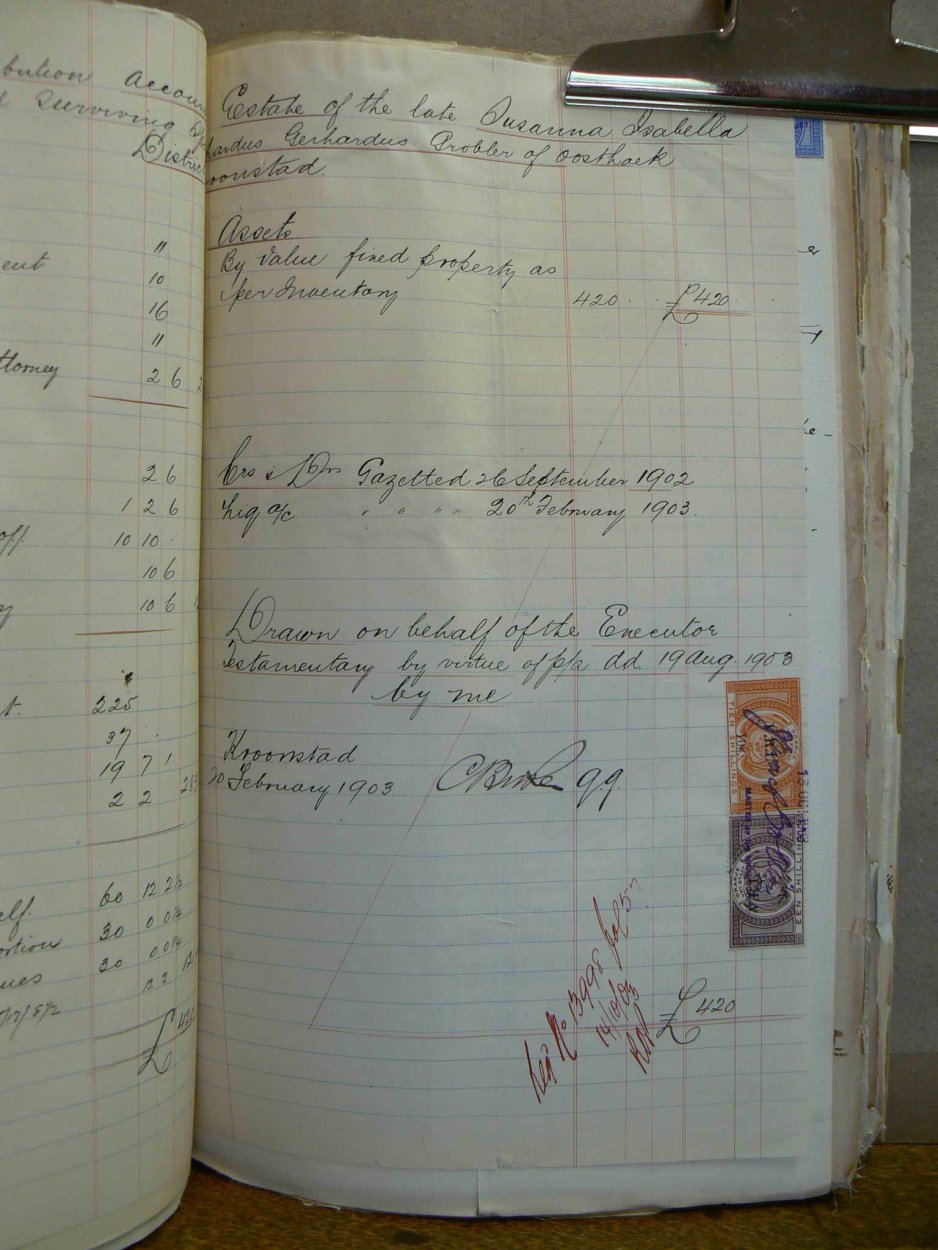 bution Accoun
d Surviving
Distric
"
ent
10
16
"
ttorney
2 6
2 6
1 2 6
off
10 10
10 6
10 6
t. 225
37
19 7 1
2 2
60 12 2½
lf.
30 0 0¼
ortion
30 0 0¼
ues
£ 420
Estate of the late Susanna Isabella
hardus Gerhardus Grobler of Oosthoek
oonstad.
Assets
By Value fixed property as
per Inventory 420 £420
Crs & Drs Gazetted 26 September 1902
Liq a/c " " " " 20th February 1903.
Drawn on behalf of the Executor
Testamentary by virtue of p/a dd. 19 Aug 1903
by me
Kroonstad
20 February 1903 qq.
TIEN SHILLINGS
EEN SHILLING
MASTER OF
£ 420
Reg No 13998
14/10/03